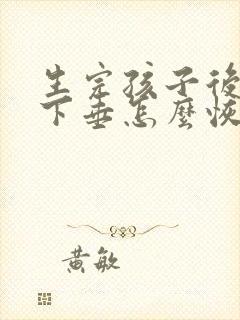 生完孩子後
下垂怎麼恢
黃敏